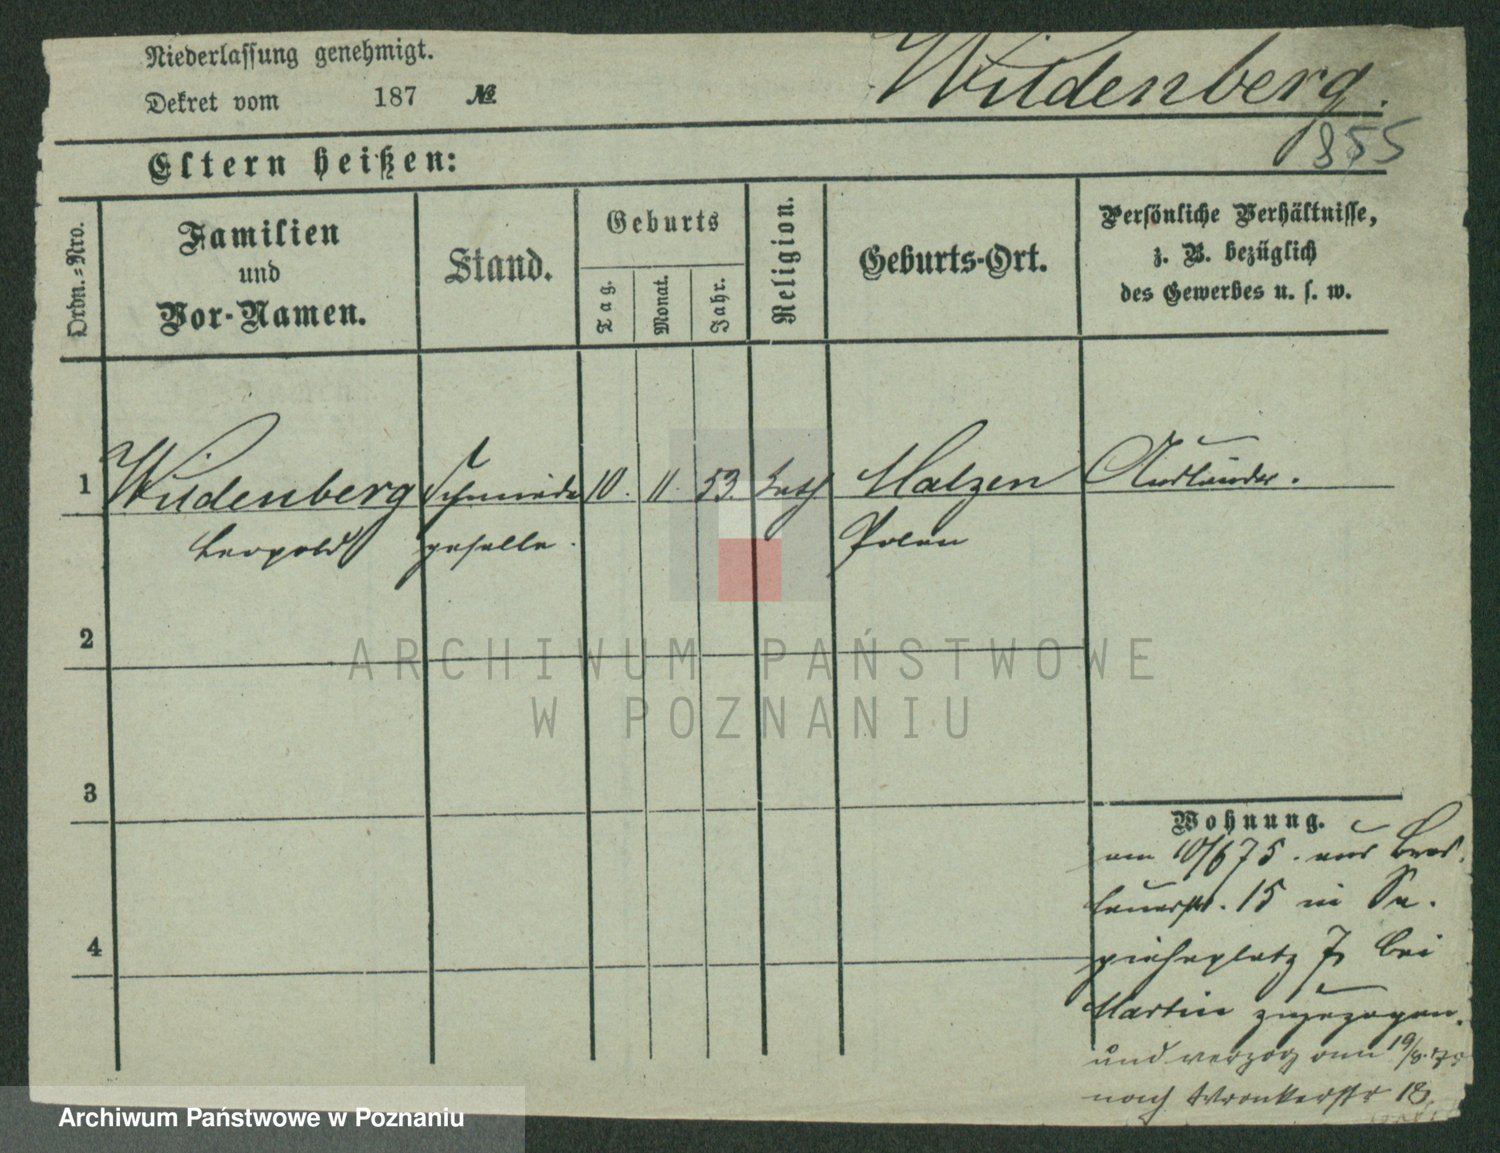 Niederlassung genehmigt.
Wildenberg.
Dekret vom 187 №
855
Eltern heißen:
Ordn.-Nro.
Familien
und
Vor-Namen.
Stand.
Geburts
Tag.
Monat.
Jahr.
Religion.
Geburts-Ort.
Persönliche Verhältnisse,
z. B. bezüglich
des Gewerbes u. s. w.
1 Wildenberg Schmiede 10. 11. 53. Kath Malzen Ausländer.
Leopold geselle. Polen
2
ARCHIWUM PAŃSTWOWE
W POZNANIU
3
4
Wohnung.
am 10/6 75. aus Bres-
lauerstr. 15 in Sa-
piehaplatz 7, bei
Martin zugezogen.
und verzog am 19/8. 75
nach Wronkerstr 18.
Archiwum Państwowe w Poznaniu